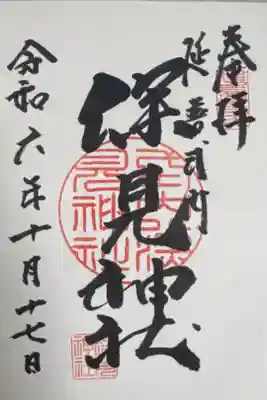 奉拝
延喜式内
深見神社
令和六年十月十七日